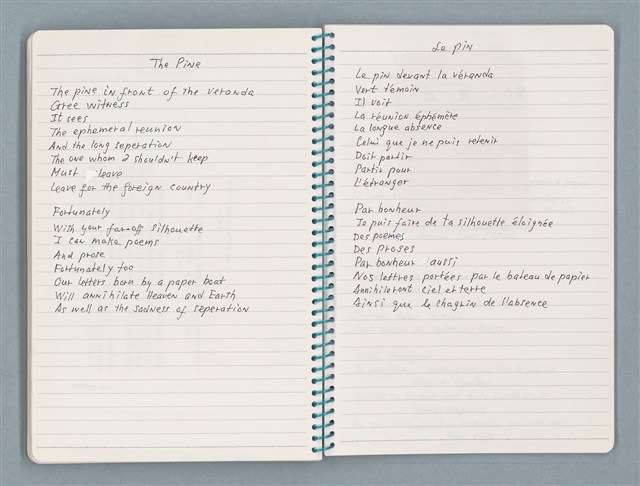 The Pine
The pine in front of the veranda
Gree witness
It sees
The ephemeral reunion
And the long seperation
The one whom I shouldn't keep
Must leave
Leave for the foreign country
Fortunately
With your far-off silhouette
I can make poems
And prose
Fortunately too
Our letters born by a paper boat
Will annihilate Heaven and Earth
As well as the sadness of seperation
Le pin
Le pin devant la véranda
Vert témoin
Il voit
La réunion éphémère
La longue absence
Celui que je ne puis retenir
Doit partir
Partir pour
L'étranger
Par bonheur
Je puis faire de ta silhouette éloignée
Des poèmes
Des proses
Par bonheur aussi
Nos lettres portées par le bateau de papier
Annihileront ciel et terre
Ainsi que le chagrin de l'absence